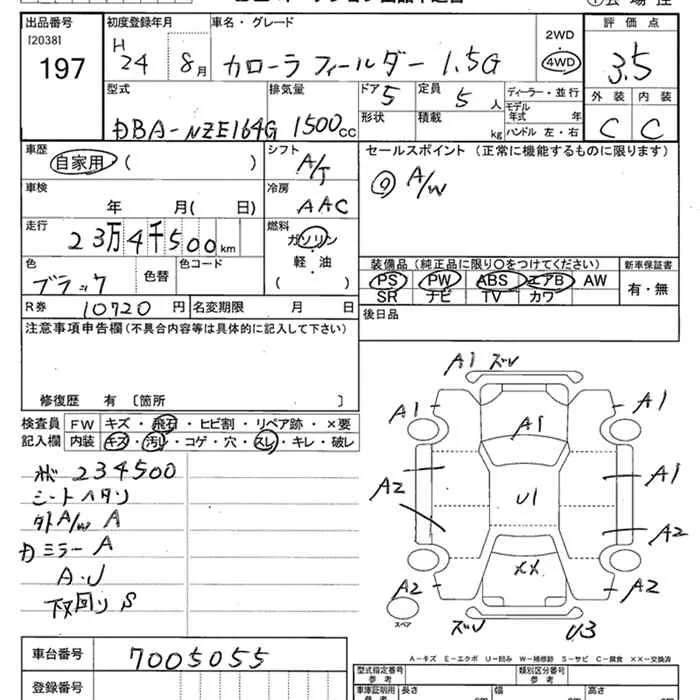 出品番号 初度登録年月 車名・グレード 2WD ・ 4WD 評価点
[2038]
197 H24 8月 カローラフィールダー 1.5G 3.5
型式 排気量 ドア 5 定員 5人 ディーラー・並行 外装 内装
DBA-NZE164G 1500cc 形状 積載 kg モデル年式 年 C C
ハンドル 左・右
車歴 自家用 ( ) シフト A/T セールスポイント (正常に機能するものに限ります)
車検 年 月( 日) 冷房 AAC ◎ A/W
走行 23万4千500km 燃料 ガソリン
軽・油
( )
色 ブラック 色替 色コード
装備品 (純正品に限り○をつけてください) 新車保証書
PS PW ABS エアB AW 有・無
SR ナビ TV カワ
R券 10720円 名変期限 月 日 後日品
注意事項申告欄(不具合内容等は具体的に記入して下さい)
修復歴 有 〔箇所 〕
検査員 FW キズ・飛石・ヒビ割・リペア跡・×要
記入欄 内装 キズ・汚レ・コゲ・穴・スレ・キレ・破レ
234500
シートヘタリ
外A/W A
ミラー A
A.U
下回り S
A1 ズレ
A1 A1 A1
A2 U1 A1
A2
A2 ×× A2
スペア ズレ U3
A-キズ E-エクボ U-凹み W-補修跡 S-サビ C-腐食 ××-交換済
車台番号 7005055
登録番号
型式指定番号 参考 類別区分番号 参考
車庫証明用 参考 長さ cm 幅 cm 高さ cm